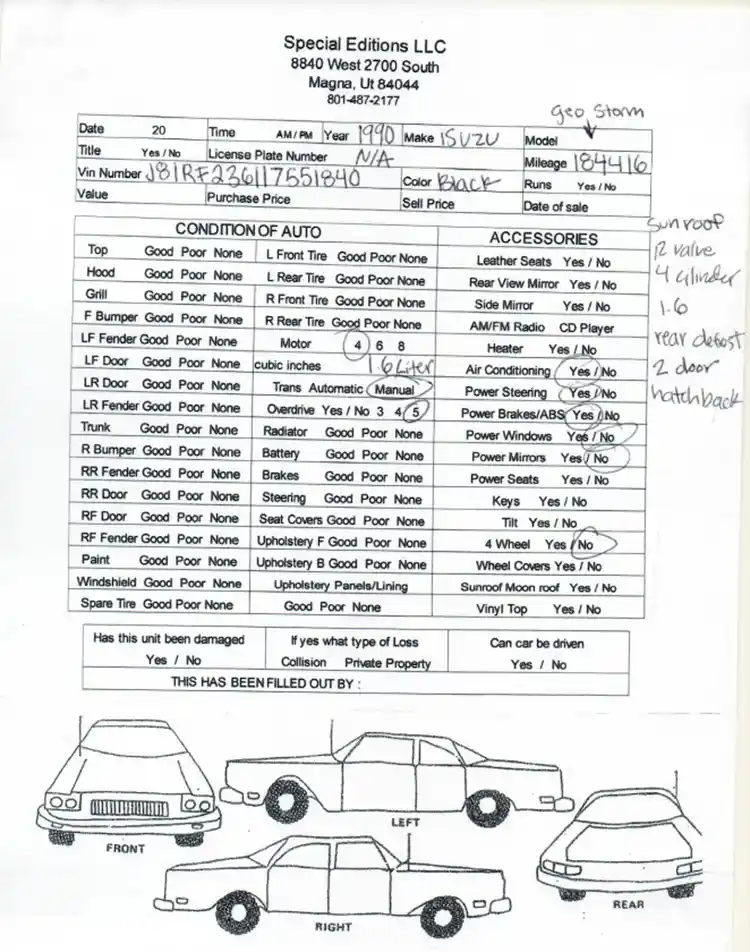 Special Editions LLC
8840 West 2700 South
Magna, Ut 84044
801-487-2177
geo Storm
Date 20 Time AM/PM Year 1990 Make ISUZU Model
Title Yes / No License Plate Number N/A Mileage 184416
Vin Number J81RF236117551840 Color Black Runs Yes / No
Value Purchase Price Sell Price Date of sale
CONDITION OF AUTO ACCESSORIES
Top Good Poor None L Front Tire Good Poor None Leather Seats Yes / No
Hood Good Poor None L Rear Tire Good Poor None Rear View Mirror Yes / No
Grill Good Poor None R Front Tire Good Poor None Side Mirror Yes / No
F Bumper Good Poor None R Rear Tire Good Poor None AM/FM Radio CD Player
LF Fender Good Poor None Motor 4 6 8 Heater Yes / No
LF Door Good Poor None cubic inches 1.6 Liter Air Conditioning Yes / No
LR Door Good Poor None Trans Automatic Manual Power Steering Yes / No
LR Fender Good Poor None Overdrive Yes / No 3 4 5 Power Brakes/ABS Yes / No
Trunk Good Poor None Radiator Good Poor None Power Windows Yes / No
R Bumper Good Poor None Battery Good Poor None Power Mirrors Yes / No
RR Fender Good Poor None Brakes Good Poor None Power Seats Yes / No
RR Door Good Poor None Steering Good Poor None Keys Yes / No
RF Door Good Poor None Seat Covers Good Poor None Tilt Yes / No
RF Fender Good Poor None Upholstery F Good Poor None 4 Wheel Yes / No
Paint Good Poor None Upholstery B Good Poor None Wheel Covers Yes / No
Windshield Good Poor None Upholstery Panels/Lining Sunroof Moon roof Yes / No
Spare Tire Good Poor None Good Poor None Vinyl Top Yes / No
Sunroof
12 valve
4 cylinder
1.6
rear defrost
2 door
hatchback
Has this unit been damaged If yes what type of Loss Can car be driven
Yes / No Collision Private Property Yes / No
THIS HAS BEEN FILLED OUT BY :
FRONT
LEFT
RIGHT
REAR